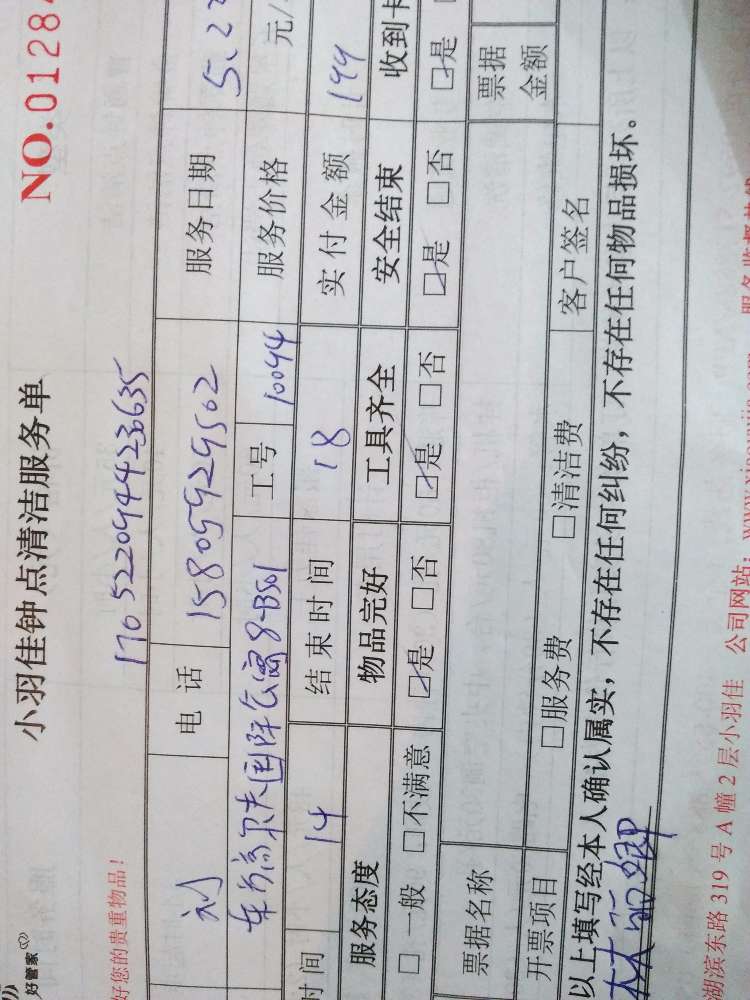 好管家
小羽佳钟点清洁服务单 NO.01284
好您的贵重物品！ 170522094423635
刘 电话 15805929502 服务日期 5.22
东方高尔夫国际公寓8-B501 工号 10094 服务价格 元/
时间 14 结束时间 18 实付金额 144
服务态度 物品完好 工具齐全 安全结束 收到卡
□一般 □不满意 ☑是 □否 ☑是 □否 ☑是 □否 ☑是
票据名称 票据金额
开票项目 □服务费 □清洁费 客户签名
以上填写经本人确认属实，不存在任何纠纷，不存在任何物品损坏。
林丽卿
湖滨东路 319 号 A 幢 2 层小羽佳 公司网站：